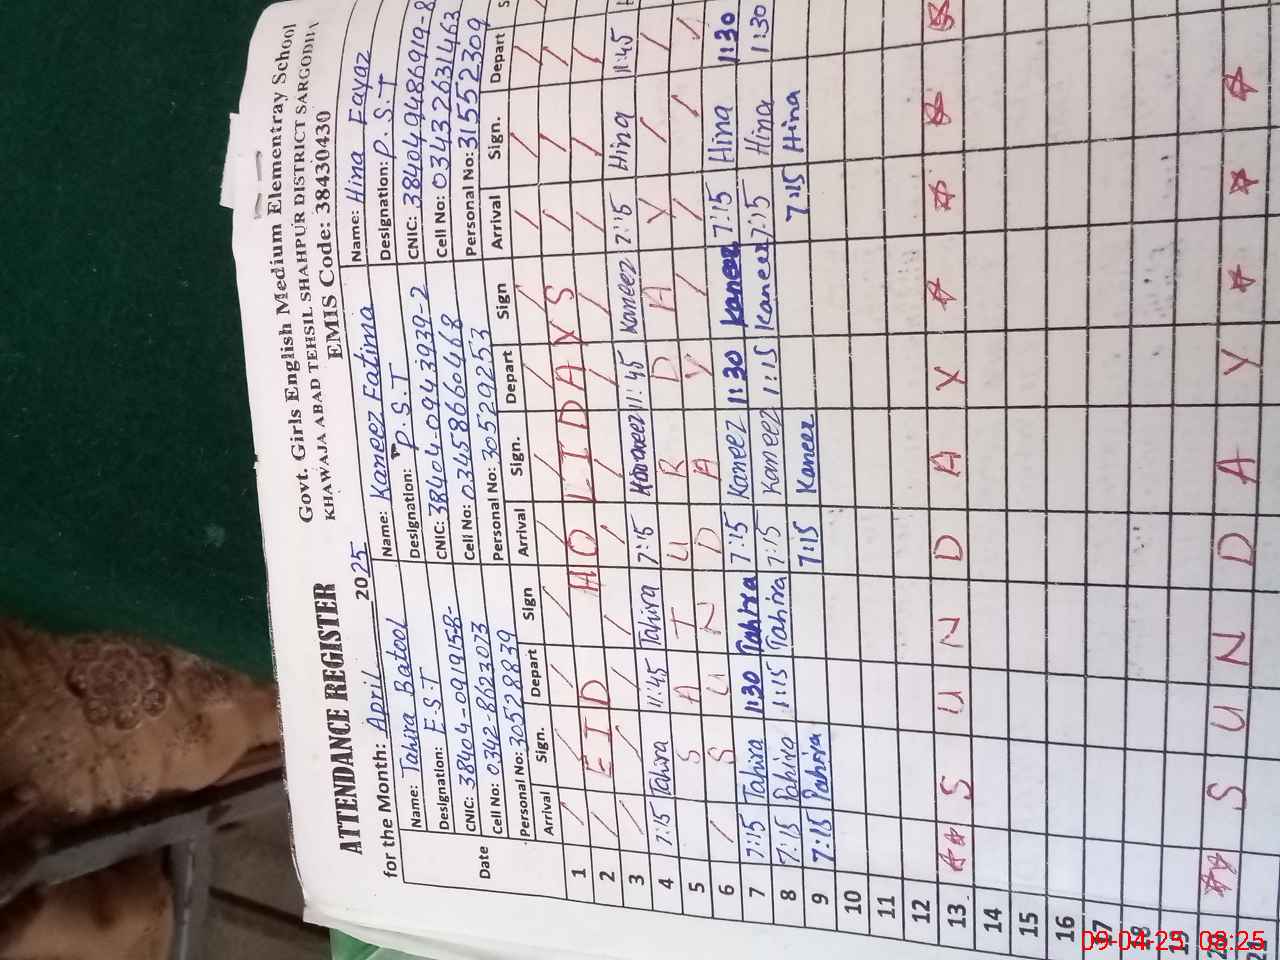 Govt. Girls English Medium Elementray School
KHAWAJA ABAD TEHSIL SHAHPUR DISTRICT SARGODHA
ATTENDANCE REGISTER EMIS Code: 38430430
for the Month: April 2025
Name: Tahira Batool Name: Kaneez Fatima Name: Hina Fayaz
Designation: E.S.T Designation: P.S.T Designation: P.S.T
CNIC: 38404-0943939-2
Cell No: 0342-8623073 Cell No: 03458660468 Cell No: 03432631463
Personal No: 30528839 Personal No: 30529253 Personal No: 31552309
Date Arrival Sign. Depart Sign Arrival Sign. Depart Sign Arrival Sign. Depart
1
2 EID HOLIDAYS
3
4 7:15 Tahira 11:45 Tahira 7:15 Kaneez 11:45 Kaneez 7:15 Hina 11:45
5 SATURDAY
6 SUNDAY
7 7:15 Tahira 1:30 Tahira 7:15 Kaneez 1:30 Kaneez 7:15 Hina 1:30 Hina
8 7:15 Tahira 1:15 Tahira 7:15 Kaneez 1:15 Kaneez 7:15 Hina 1:30 Hina
9 7:15 Tahira 7:15 Kaneez 7:15 Hina
10
11
12
13 SUNDAY
14
15
16
17
18
19
20 SUNDAY
21
09-04-25 08:25